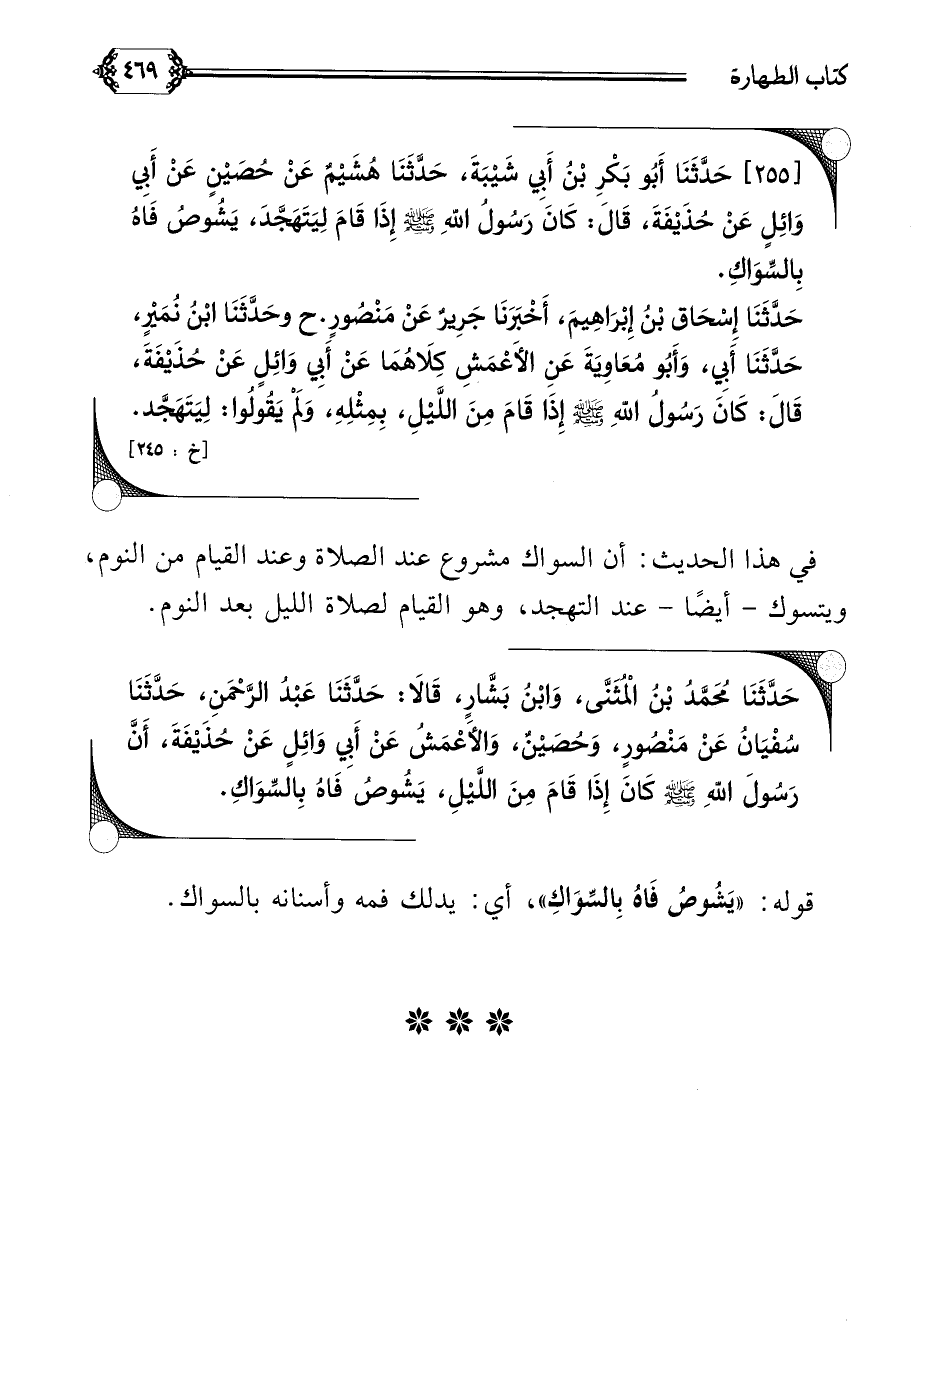 كتاب الطهارة
٤٦٩
[٢٥٥] حَدَّثَنَا أَبُو بَكْرِ بْنُ أَبِي شَيْبَةَ، حَدَّثَنَا هُشَيْمٌ عَنْ حُصَيْنٍ عَنْ أَبِي
وَائِلٍ عَنْ حُذَيْفَةَ، قَالَ: كَانَ رَسُولُ اللهِ ﷺ إِذَا قَامَ لِيَتَهَجَّدَ، يَشُوصُ فَاهُ
بِالسِّوَاكِ.
حَدَّثَنَا إِسْحَاق بْنُ إِبْرَاهِيمَ، أَخْبَرَنَا جَرِيرٌ عَنْ مَنْصُورٍ.ح وحَدَّثَنَا ابْنُ نُمَيْرٍ،
حَدَّثَنَا أَبِي، وَأَبُو مُعَاوِيَةَ عَنِ الأَعْمَشِ كِلَاهُمَا عَنْ أَبِي وَائِلٍ عَنْ حُذَيْفَةَ،
قَالَ: كَانَ رَسُولُ اللهِ ﷺ إِذَا قَامَ مِنَ اللَّيْلِ، بِمِثْلِهِ، وَلَمْ يَقُولُوا: لِيَتَهَجَّد.
[خ : ٢٤٥]
في هذا الحديث: أن السواك مشروع عند الصلاة وعند القيام من النوم،
ويتسوك - أيضًا - عند التهجد، وهو القيام لصلاة الليل بعد النوم.
حَدَّثَنَا مُحَمَّدُ بْنُ الْمُثَنَّى، وَابْنُ بَشَّارٍ، قَالَا: حَدَّثَنَا عَبْدُ الرَّحْمَنِ، حَدَّثَنَا
سُفْيَانُ عَنْ مَنْصُورٍ، وَحُصَيْنٌ، وَالأَعْمَشُ عَنْ أَبِي وَائِلٍ عَنْ حُذَيْفَةَ، أَنَّ
رَسُولَ اللهِ ﷺ كَانَ إِذَا قَامَ مِنَ اللَّيْلِ، يَشُوصُ فَاهُ بِالسِّوَاكِ.
قوله: «يَشُوصُ فَاهُ بِالسِّوَاكِ»، أي: يدلك فمه وأسنانه بالسواك.